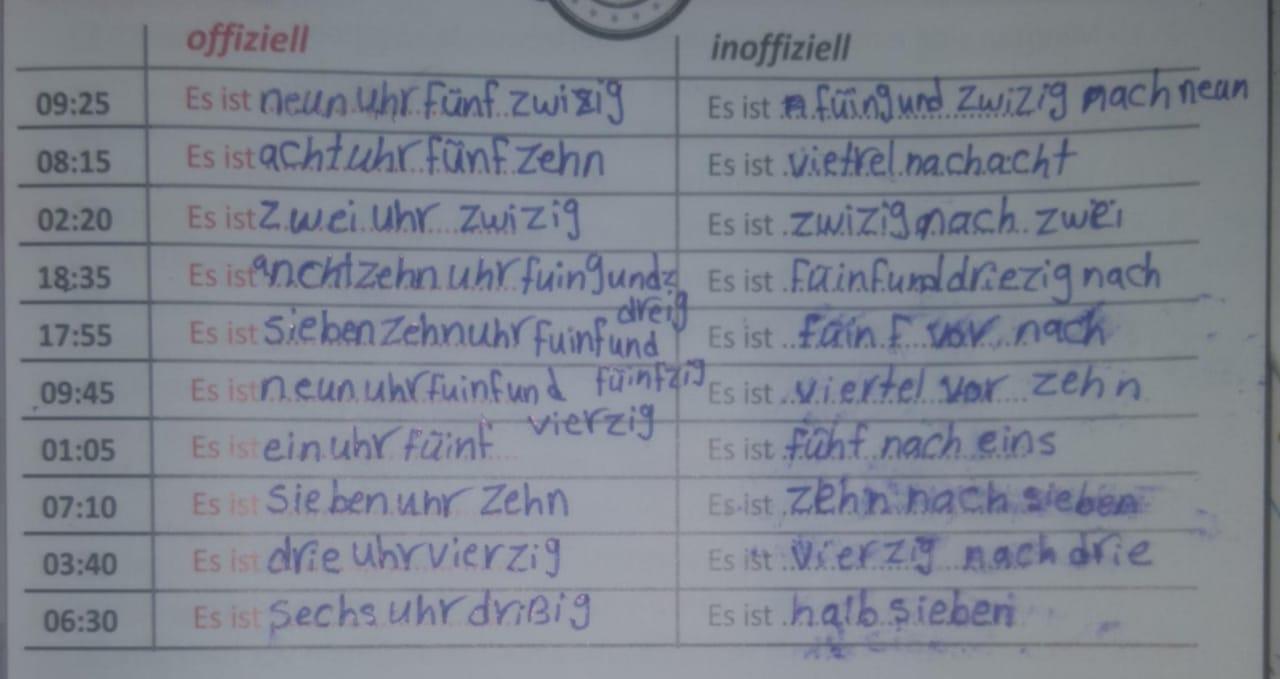 offiziell inoffiziell
09:25 Es ist neun uhr fünf zwizig Es ist füingund zwizig nach neun
08:15 Es ist acht uhr fünf zehn Es ist vietrel nach acht
02:20 Es ist zwei uhr zwizig Es ist zwizig nach zwei
18:35 Es ist anchtzehn uhr fuingundz dreig Es ist fainfund driezig nach
17:55 Es ist siebenzehn uhr fuinfund füinfzig Es ist fainf vor nach
09:45 Es ist neun uhr fuinfund vierzig Es ist viertel vor zehn
01:05 Es ist ein uhr füinf Es ist fühf nach eins
07:10 Es ist sieben uhr zehn Es ist zehn nach sieben
03:40 Es ist drie uhr vierzig Es ist vierzig nach drie
06:30 Es ist sechs uhr drißig Es ist halb sieben